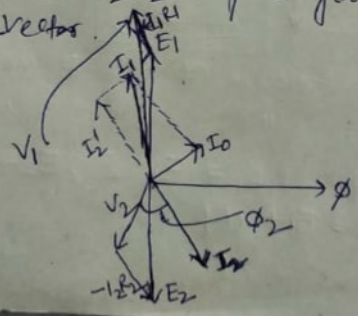 vector.
I₁R₁
E₁
I₁
I₂'
I₀
V₁
ϕ
V₂
ϕ₂
I₂
-I₂R₂
E₂